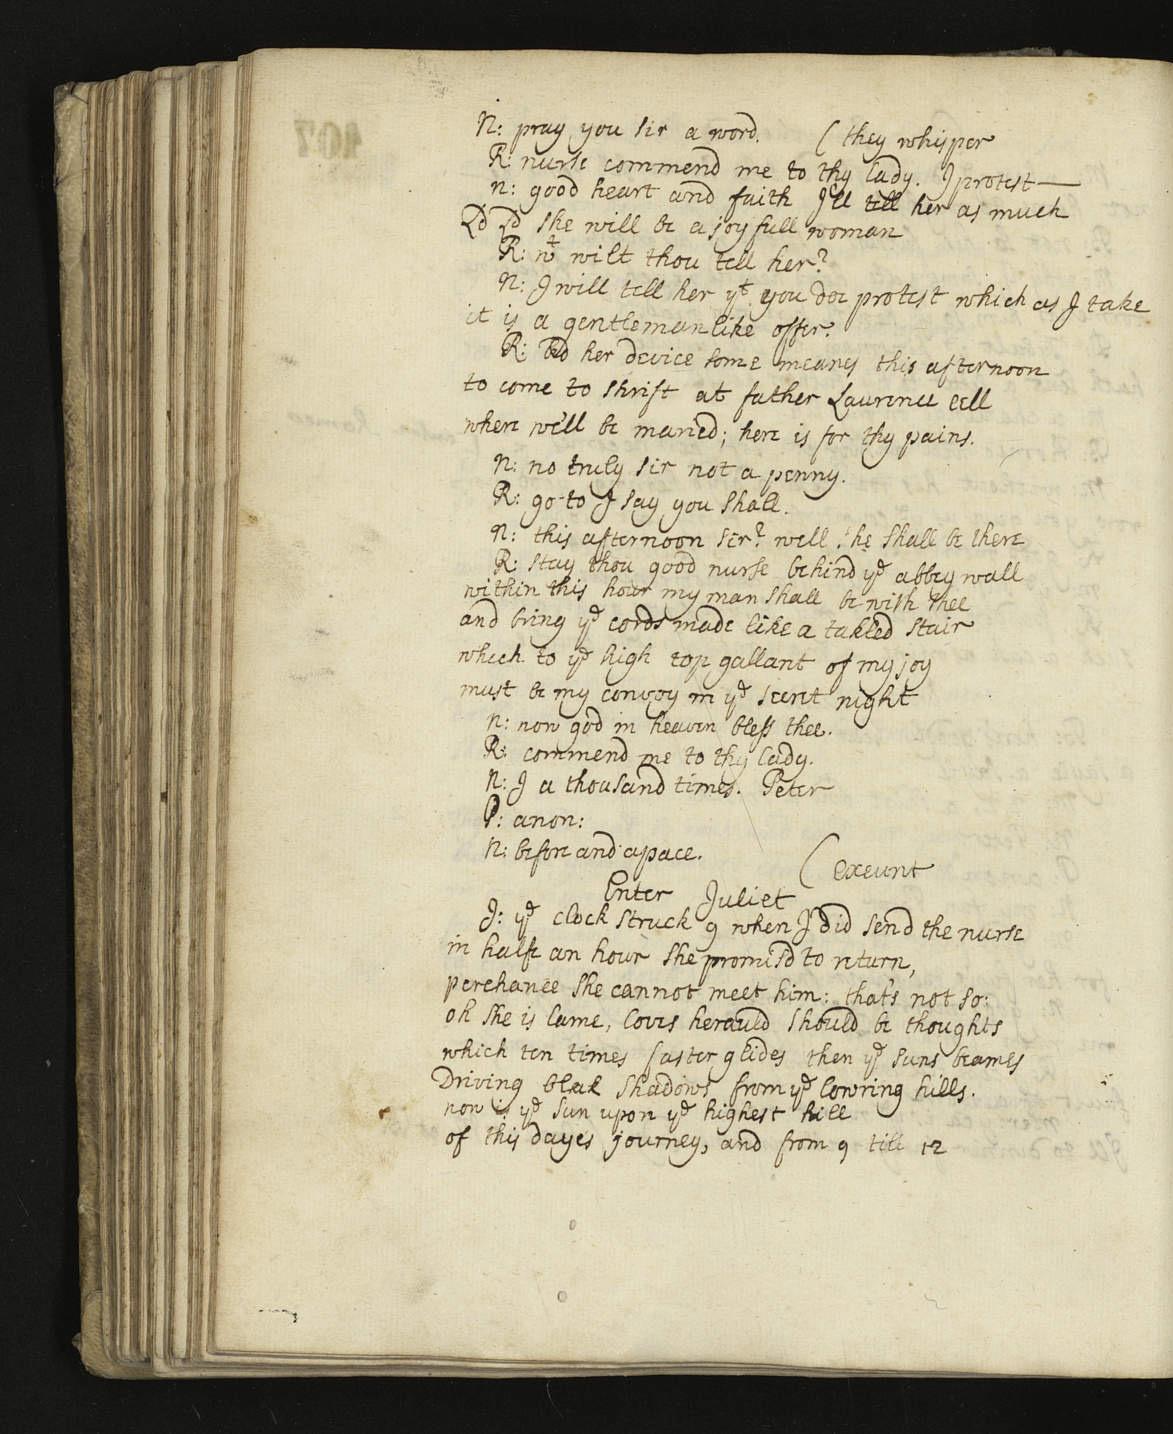 N: pray you sir a word. ( they whisper
R: nurse commend me to thy lady. I protest—
n: good heart and faith I'll tell her as much
Ld Ld she will be a joyfull woman
R: wt wilt thou tell her?
N: I will tell her yt you doe protest which as I take
it is a gentlemanlike offer.
R: Bid her device some means this afternoon
to come to shrift at father Laurence cell
where we'll be maried; here is for thy pains.
n: no truly sir not a penny.
R: go to I say you shall.
n: this afternoon sir? well she shall be there
R: stay thou good nurse behind ye abbey wall
within this hour my man shall be with thee
and bring ye cords made like a takled stair
which to ye high top gallant of my joy
must be my convoy in ye secret night
n: now god in heaven bless thee.
R: commend me to thy lady.
N: I a thousand times. Peter
P: anon:
N: before and apace.
( exeunt
Enter Juliet
J: ye clock struck 9 when I did send the nurse
in halfe an hour she promis'd to return,
perchance she cannot meet him: that's not so:
oh she is lame, loves herauld should be thoughts
which ten times faster glides then ye suns beames
Driving blak shadows from ye lowring hills.
now is ye sun upon ye highest hill
of this dayes journey, and from 9 till 12